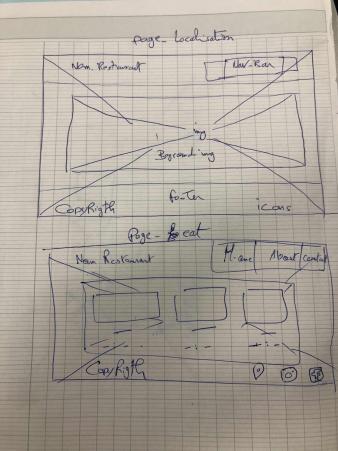 page_Localisation
Nom.Restaurant Nav-Bar
img
Bagraound img
footer
CopyRigth icons
Page_ eat
Nom Restaurant About contact
CopyRigth